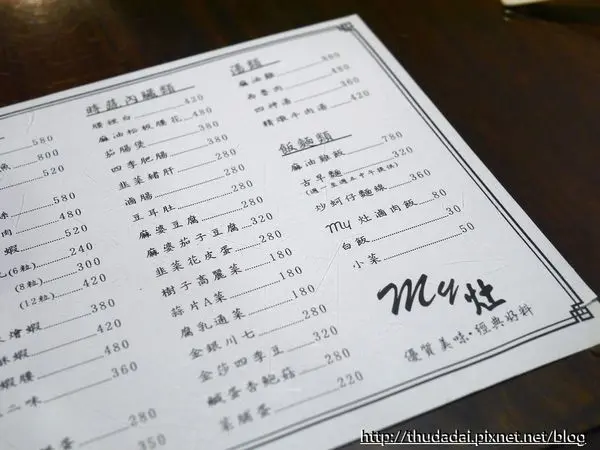 580
魚 800
520
味 580
肉 480
蝦 520
(6粒) 240
(8粒) 300
(12粒) 420
燴蝦 380
酥蝦 420
蝦腰 480
三味 360
280
蛋 350
時蔬內臟類
腰裡白 420
麻油松板腰花 480
茄腸煲 380
四季肥腸 380
韭菜豬肝 280
滷腸 280
豆耳肚 280
麻婆豆腐 280
麻婆茄子豆腐 320
韭菜花皮蛋 280
樹子高麗菜 180
蒜片A菜 180
腐乳通菜 180
金銀川七 280
金莎四季豆 320
鹹蛋杏鮑菇 280
菜脯蛋 220
湯類
麻油雞 380
肉骨肉 480
四神湯 360
精燉牛肉湯 420
飯麵類
麻油雞飯 780
古早麵 320
(週一至週五中午提供)
炒蚵仔麵線 360
my 灶滷肉飯 80
白飯 30
小菜 50
my 灶
優質美味‧經典好料
http://thudadai.pixnet.net/blog